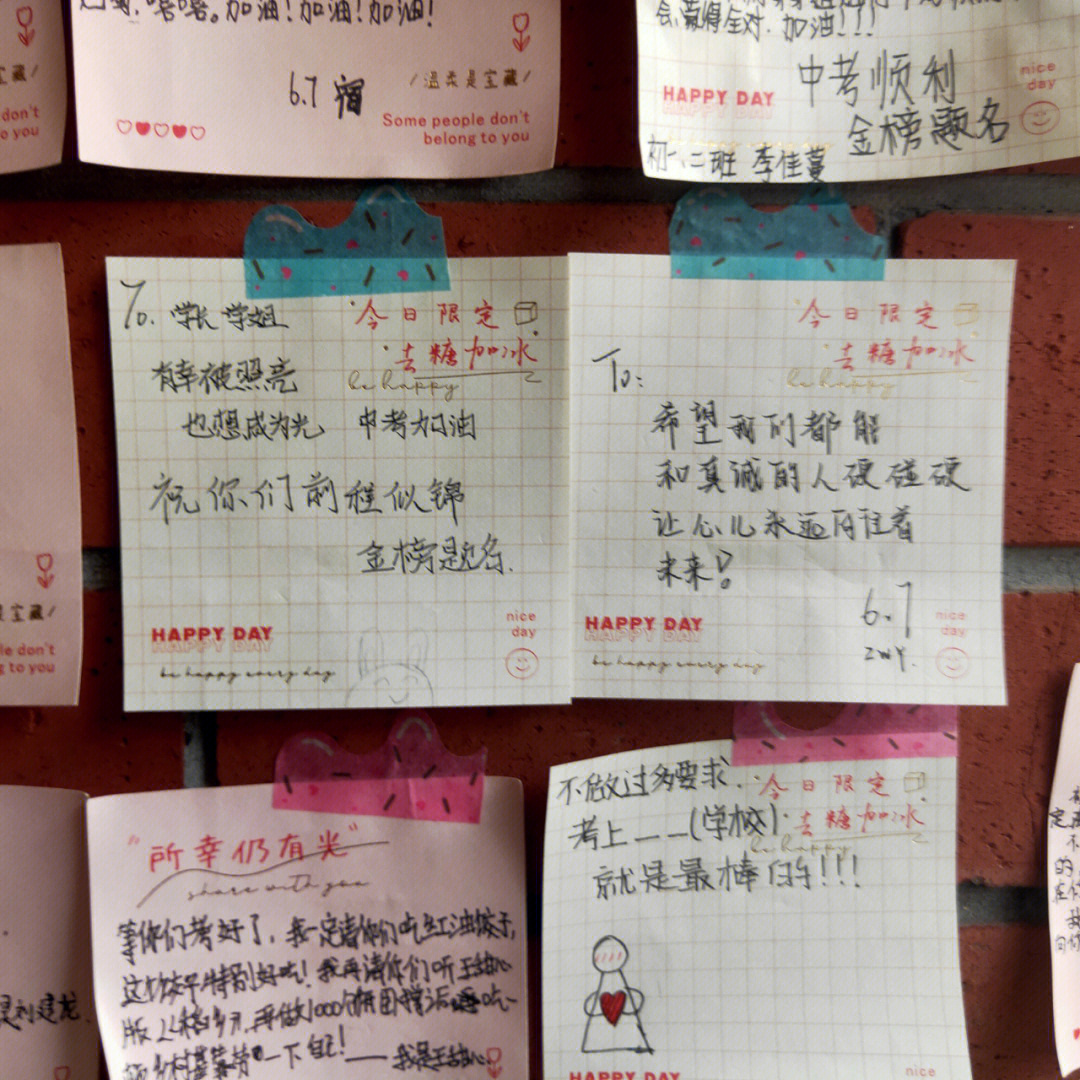 嘻嘻。加油!加油!加油!
6.7 宿
/温柔是宝藏/
Some people don't
belong to you
会,赢得全对.加油!!!
HAPPY DAY
中考顺利
金榜题名
nice
day
初一、二班 李佳蔓
宝藏/
don't
o you
To. 学长 学姐
今日限定
去糖加冰
be happy
有幸被照亮
也想成为光 中考加油
祝你们前程似锦
金榜题名.
HAPPY DAY
HAPPY DAY
be happy every day
nice
day
今日限定
去糖加冰
be happy
To:
希望我们都能
和真诚的人硬碰硬
让心儿永远向往着
未来!
6.7
ZWY.
HAPPY DAY
HAPPY DAY
be happy every day
nice
day
是宝藏/
le don't
g to you
"所幸仍有光"
share with you
等你们考好了,我一定请你们吃红油饺子,
这坊饺子特别好吃!我再请你们听王甜心
不做过多要求.
今日限定
考上__(学校)
去糖加冰
be happy
就是最棒的!!!
HAPPY DAY
nice
刘建龙.